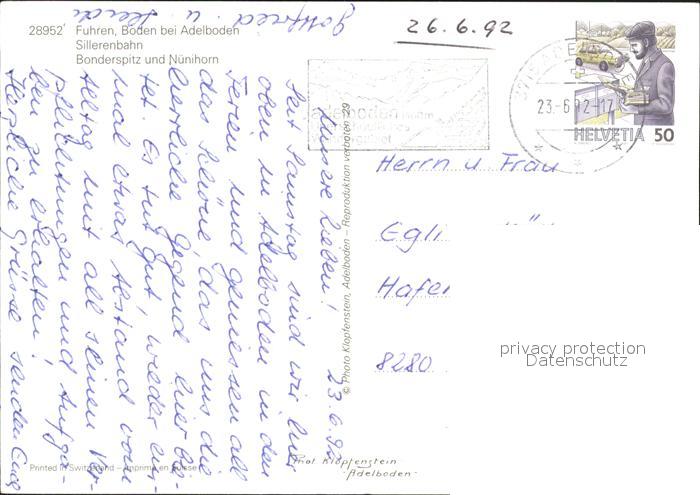 28952 Fuhren, Boden bei Adelboden
Sillerenbahn
Bonderspitz und Nünihorn
26.6.92
23.-6.92-17
HELVETIA 50
adelboden
23.6.92
Unsere Lieben!
Seit Samstag sind wir hier
oben in Adelboden in den
Ferien und geniessen all
das Schöne, das uns die
herrliche Gegend hier bie-
tet. Es tut gut, wieder ein-
mal etwas Abstand vom
Alltag mit all seinen Ver-
pflichtungen und Aufga-
ben zu erhalten!
Herzliche Grüsse senden Euch
Gottfried u. Heidi
© Photo Klopfenstein, Adelboden – Reproduktion verboten 29
Herrn u. Frau
Egli
8280
privacy protection
Datenschutz
Phot. Klopfenstein
Adelboden
Printed in Switzerland – Imprimé en Suisse